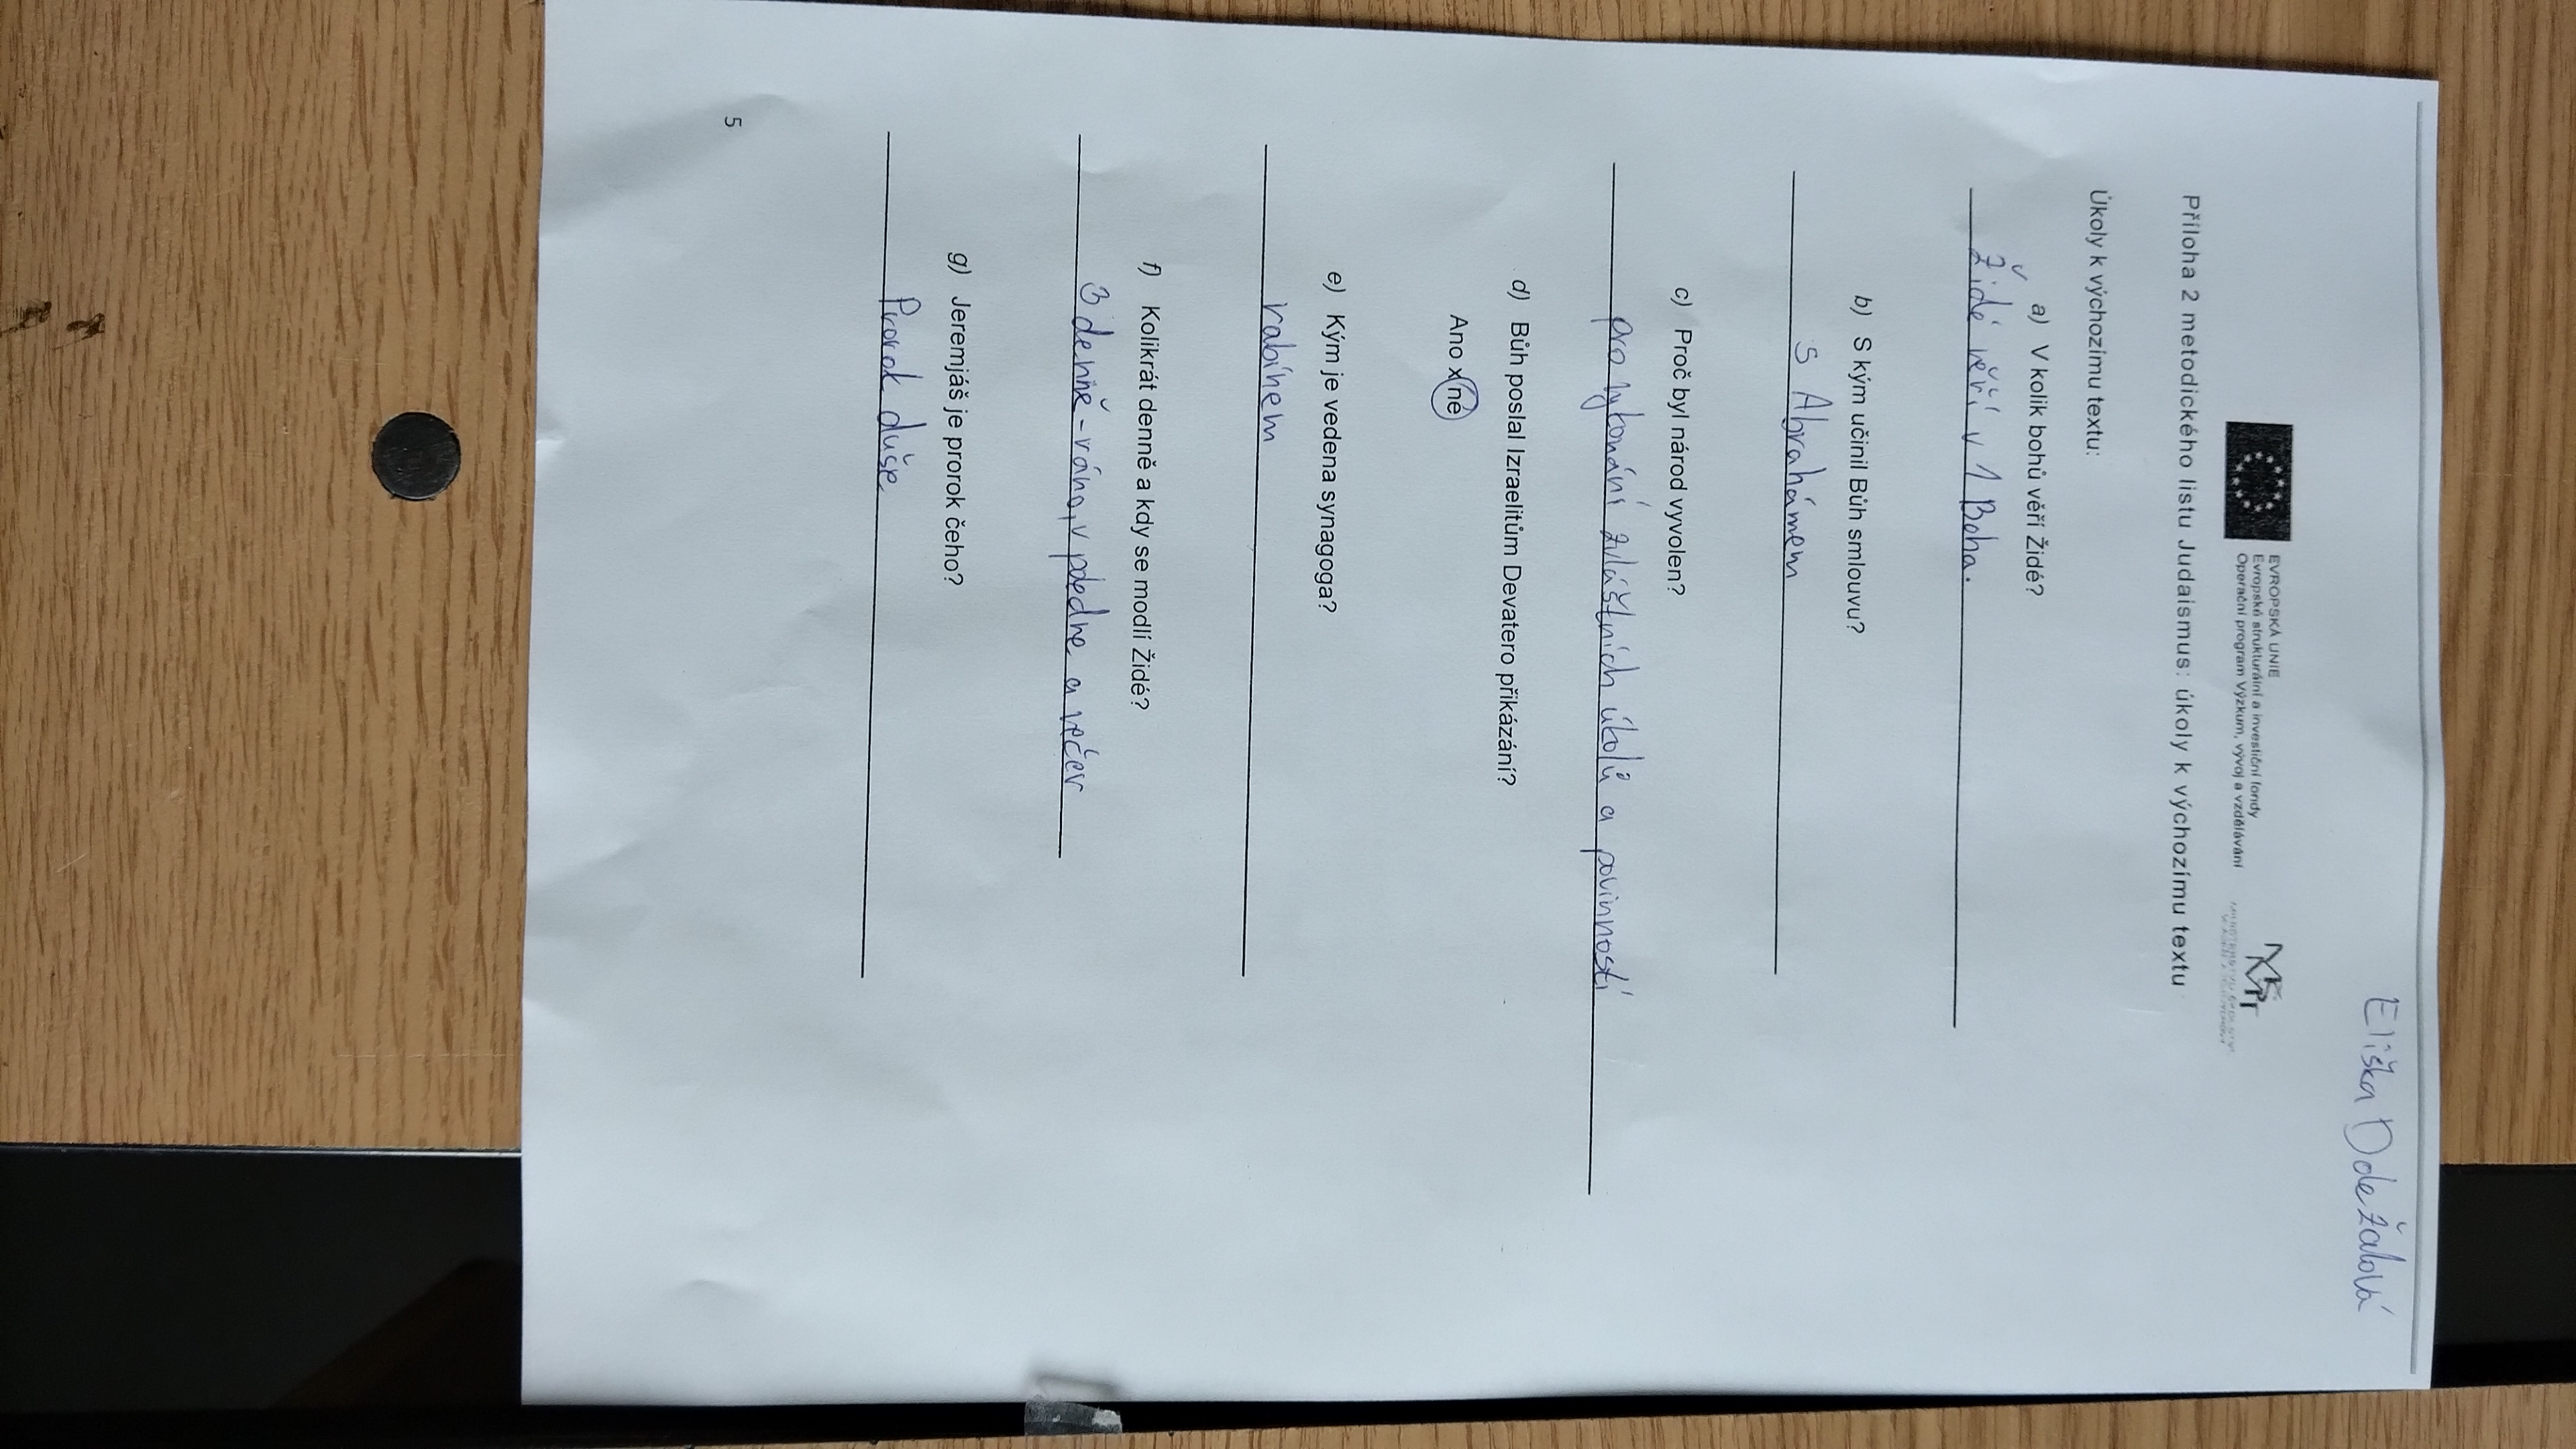 Eliška Doležalová
EVROPSKÁ UNIE
Evropské strukturální a investiční fondy
Operační program Výzkum, vývoj a vzdělávání
Příloha 2 metodického listu Judaismus: úkoly k výchozímu textu
Úkoly k výchozímu textu:
a) V kolik bohů věří Židé?
Židé věří v 1 Boha.
b) S kým učinil Bůh smlouvu?
s Abrahámem
c) Proč byl národ vyvolen?
pro vykonání zvláštních úkolů a povinností
d) Bůh poslal Izraelitům Devatero přikázání?
Ano x ne
e) Kým je vedena synagoga?
rabínem
f) Kolikrát denně a kdy se modlí Židé?
3 denně - ráno, v poledne a večer
g) Jeremjáš je prorok čeho?
Prorok duše
5